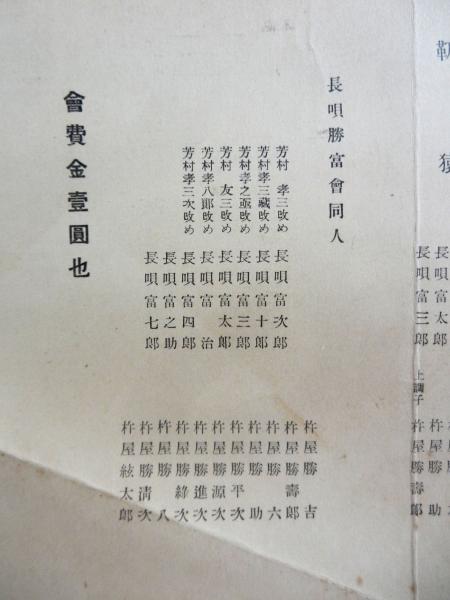 長唄富太郎
杵屋勝助
長唄富三郎
上調子 杵屋勝壽郎
長唄勝富會同人
芳村孝三改め 長唄富次郎
芳村孝三藏改め 長唄富十郎
芳村孝之亟改め 長唄富三郎
芳村友三改め 長唄富太郎
芳村孝八郎改め 長唄富治
芳村孝三次改め 長唄富四郎
長唄富之助
長唄富七郎
杵屋勝吉
杵屋勝壽郎
杵屋勝六
杵屋勝助
杵屋勝平次
杵屋勝源次
杵屋勝進次
杵屋勝綠次
杵屋勝八
杵屋勝清次
杵屋絃太郎
會費金壹圓也